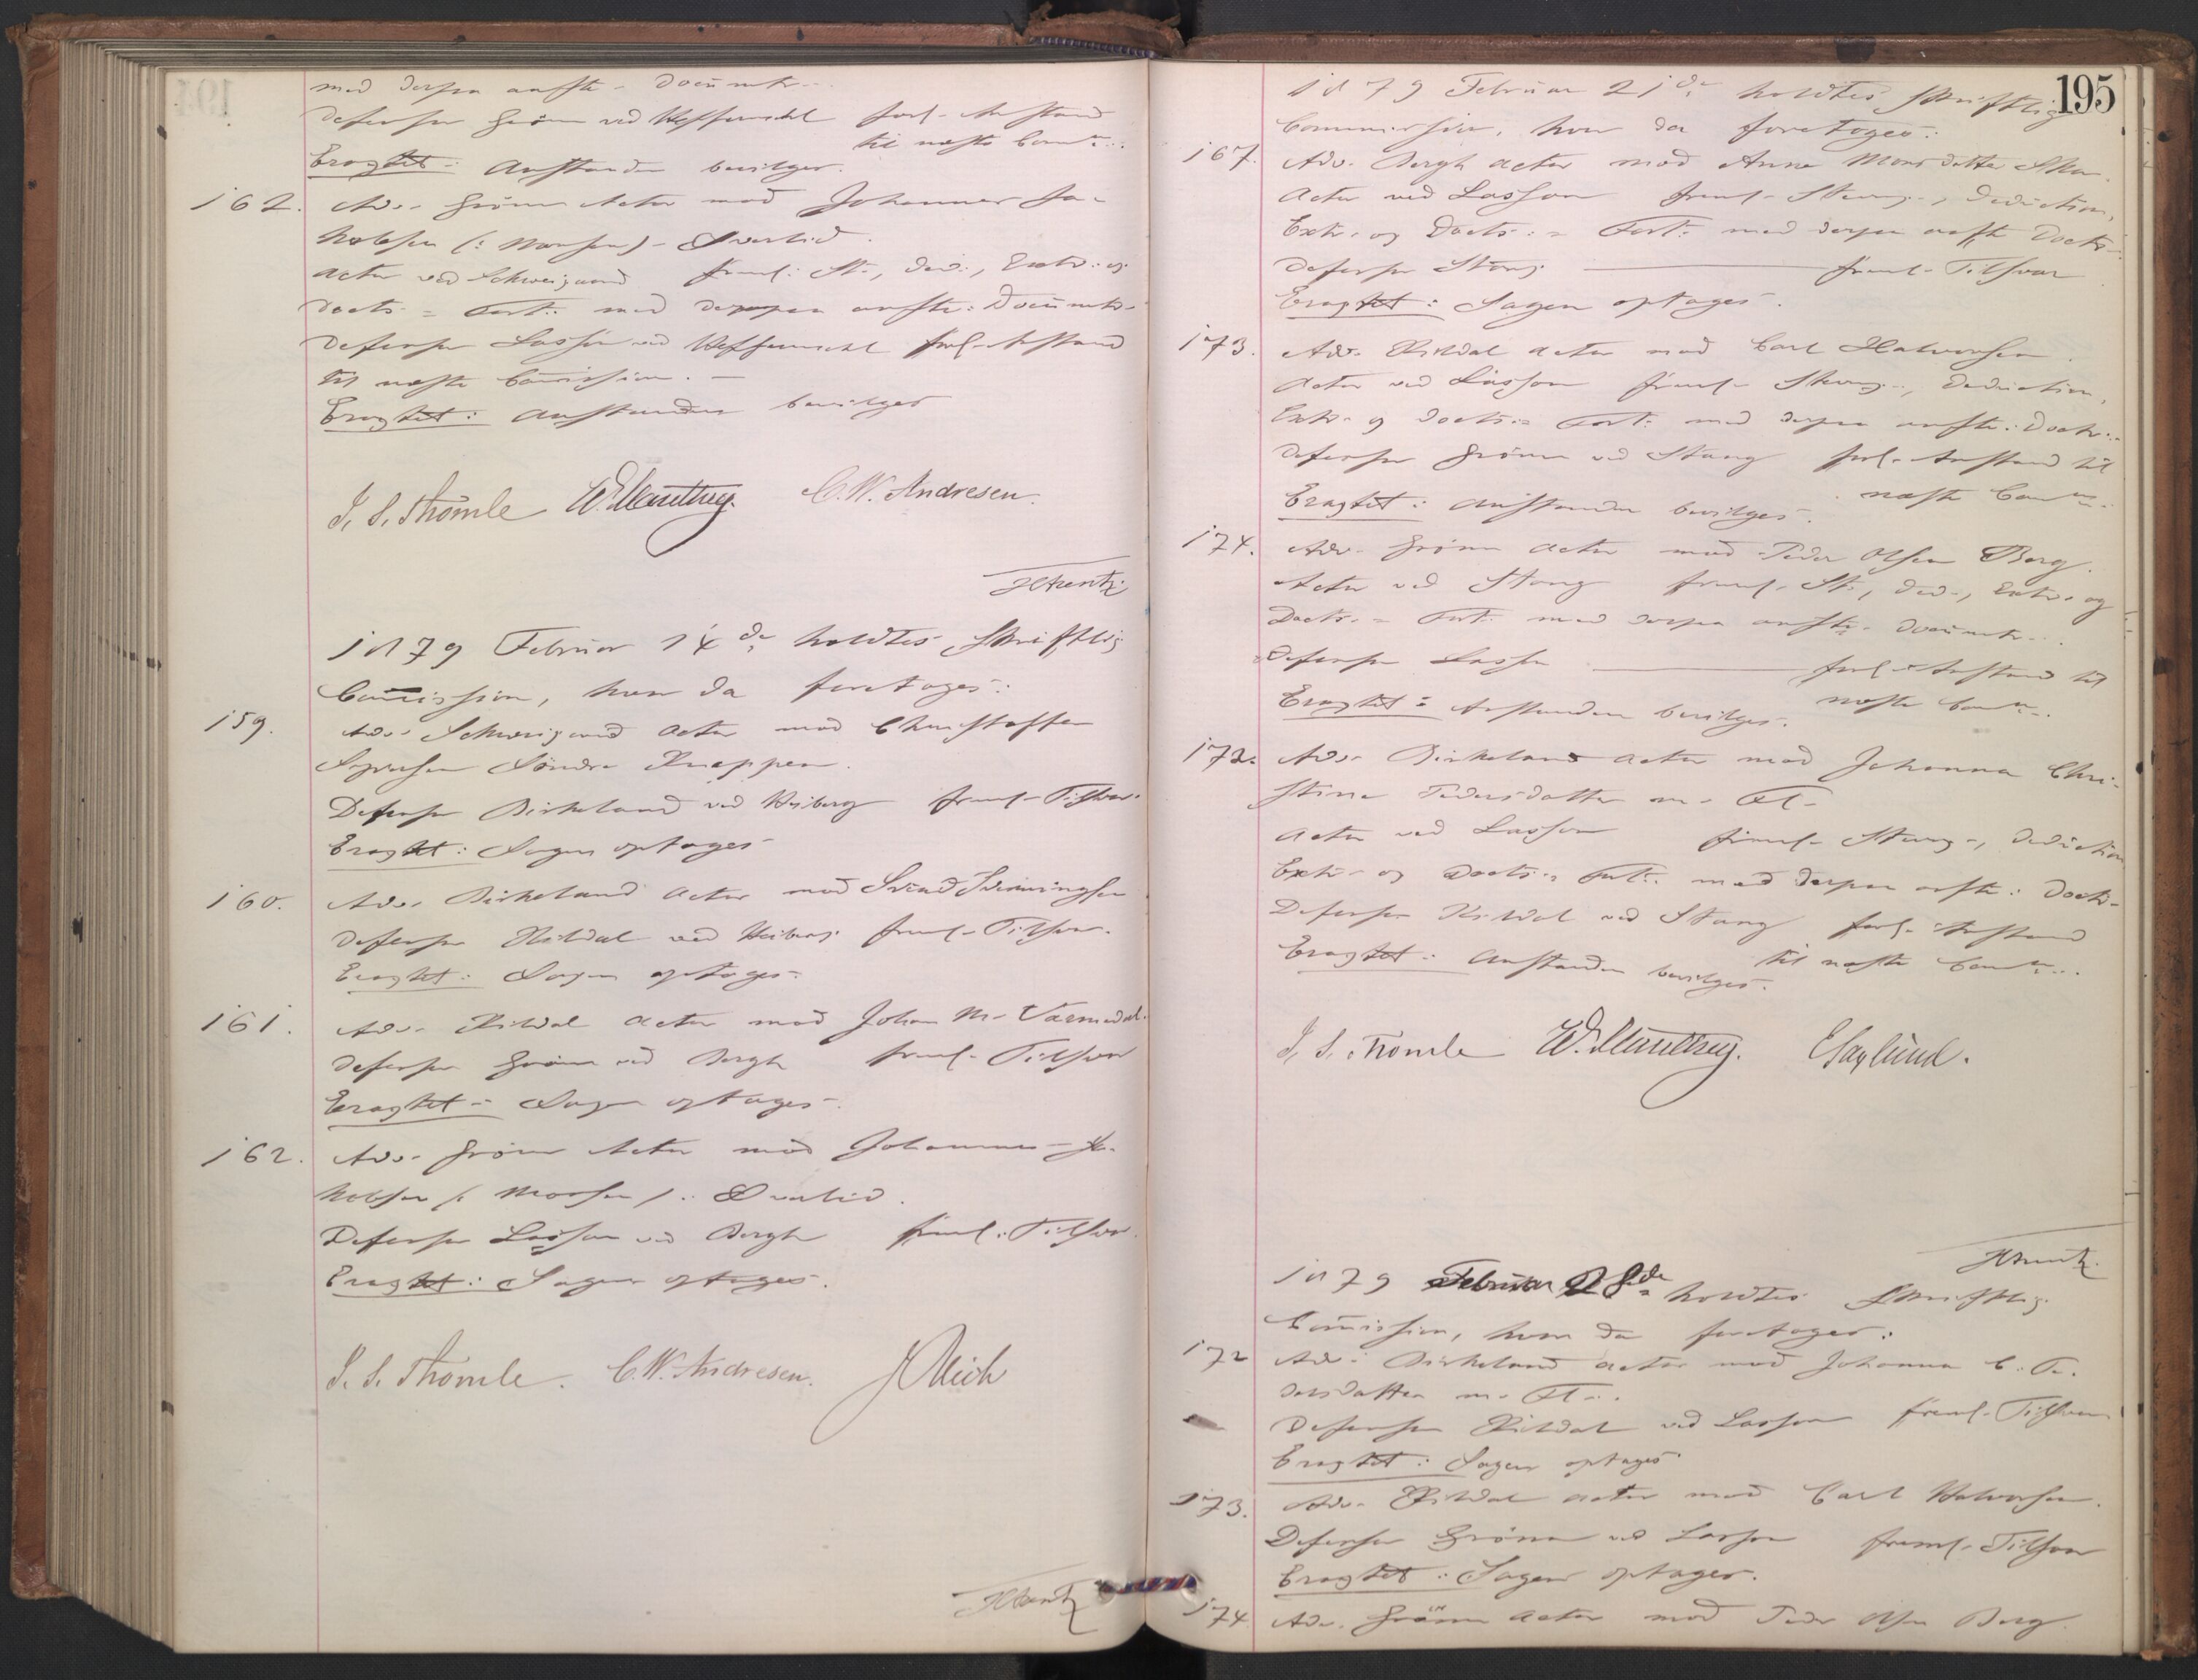 med derpaa anførte Documtr.
Defensor Grönn ved forl. Anstand
til næste Comm.
Eragtet: Anstanden bevilges.
162. Adv. Grönn Actor mod Johannes Ja-
kobsen (: Monsen) Qvarlid.
Actor ved Schweigaard freml. St., Ded., Extr. og
Docts. = Fort. med derpaa anførte Documtr.
Defensor Lasson ved forl. Anstand
til næste Commission.
Eragtet: Anstanden bevilges
J. S. Thomle C. W. Andresen.
1879 Februar 14de holdtes Skriftlig
Commission, hvor da foretoges:
159. Adv. Schweigaard Actor mod Christoffer
Söndre Knappen.
Defensor Birkeland ved Heiberg freml. Tilsvar.
Eragtet: Sagen optages
160. Adv. Birkeland Actor mod Svend Svenningsen
Defensor Kildal ved Heiberg freml. Tilsvar.
Eragtet: Sagen optages.
161. Adv. Kildal Actor mod Johan M. Varmedal.
Defensor Grönn ved Bergh freml. Tilsvar
Eragtet: Sagen optages.
162. Adv. Grönn Actor mod Johannes Ja-
kobsen (: Monsen) : Qvarlid.
Defensor Lasson ved Bergh freml. Tilsvar.
Eragtet: Sagen optages.
J. S. Thomle. C. W. Andresen.
195
1879 Februar 21de holdtes Skriftlig
Commission, hvor da foretoges:
167. Adv. Bergh Actor mod Anne Monsdatter
Actor ved Lasson freml. Stevng., Deduction,
Extr. og Docts. = Fort. med derpaa anfte Docts.
Defensor Stang freml. Tilsvar
Eragtet: Sagen optages.
173. Adv. Kildal Actor mod Carl Halvorsen.
Actor ved Lasson freml. Stevng., Deduction,
Extr. og Docts. = Fort. med derpaa anførte: Doctr.
Defensor Grönn ved Stang forl. Anstand til
næste Comm.
Eragtet: Anstanden bevilges.
174. Adv. Grönn Actor mod Peder Olsen Berg.
Actor ved Stang freml. St., Ded., Extr. og
Docts. = Fort. med derpaa anførte Documtr.
Defensor Lasson forl. Anstand til
næste Comm.
Eragtet: Anstanden bevilges.
172. Adv. Birkeland Actor mod Johanna Chri-
stine Pedersdatter m. Fl.
Actor ved Lasson freml. Stevng., Deduction
Extr. og Docts. = Fort. med derpaa anførte: Doctr.
Defensor Kildal ved Stang forl. Anstand
til næste Comm.
Eragtet: Anstanden bevilges.
J. S. Thomle
1879 Februar 28de holdtes Skriftlig
Commission, hvor da foretoges:
172 Adv. Birkeland Actor mod Johanna C. Pe-
dersdatter m. Fl.
Defensor Kildal ved Lasson freml. Tilsvar
Eragtet: Sagen optages
173. Adv. Kildal Actor mod Carl Halvorsen.
Defensor Grönn ved Lasson freml. Tilsvar
Eragtet: Sagen optages.
174 Adv. Grönn Actor mod Peder Olsen Berg.